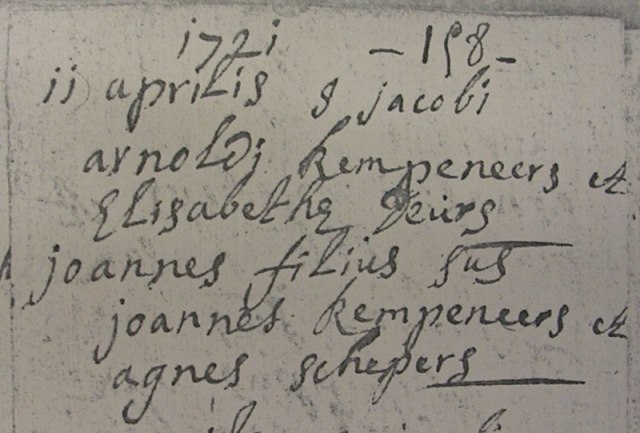 1721 - 158 -
ii aprilis S jacobi
arnoldj kempeneers et
Elisabethe Deurs
joannes filius sus
joannes kempeneers et
agnes schepers